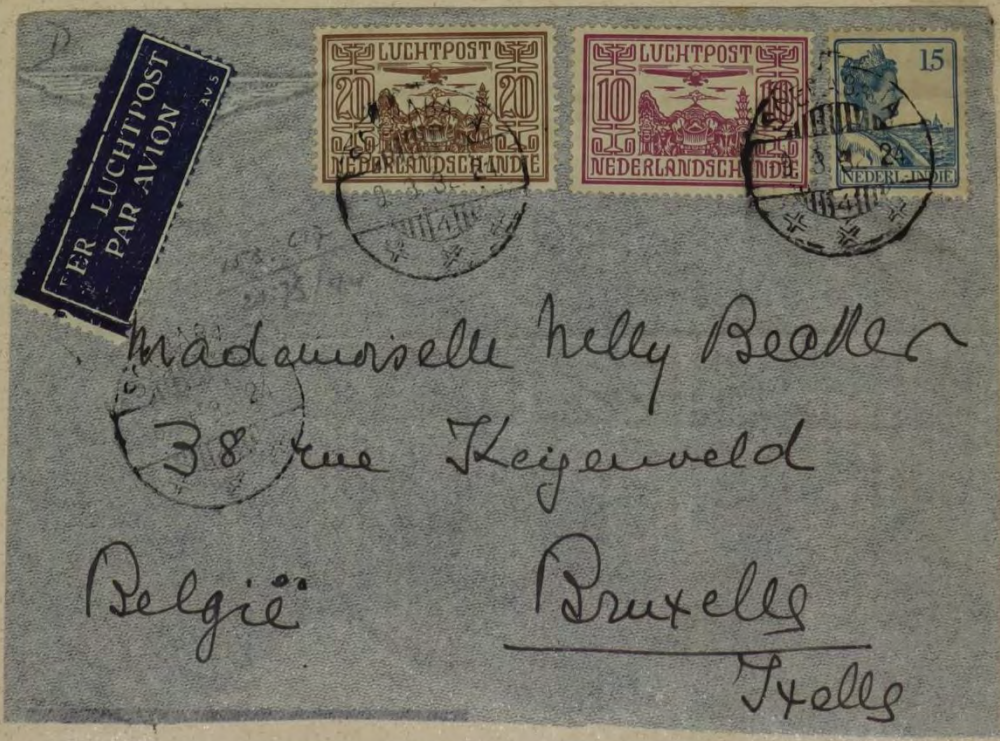 PER LUCHTPOST
PAR AVION
AV 5
LUCHTPOST
20 20
NEDERLANDSCH INDIE
LUCHTPOST
10 10
NEDERLANDSCH INDIE
15
NEDERL-INDIE
9.3.31.21
4
24
4
Mademoiselle Nelly Becker
38 rue Keyenveld
België
Bruxelles
Ixelles